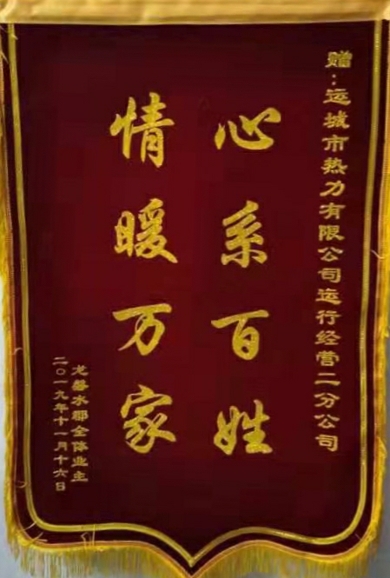 赠:运城市热力有限公司运行经营二分公司
心系百姓
情暖万家
龙磐水郡全体业主
二〇一九年十一月十六日